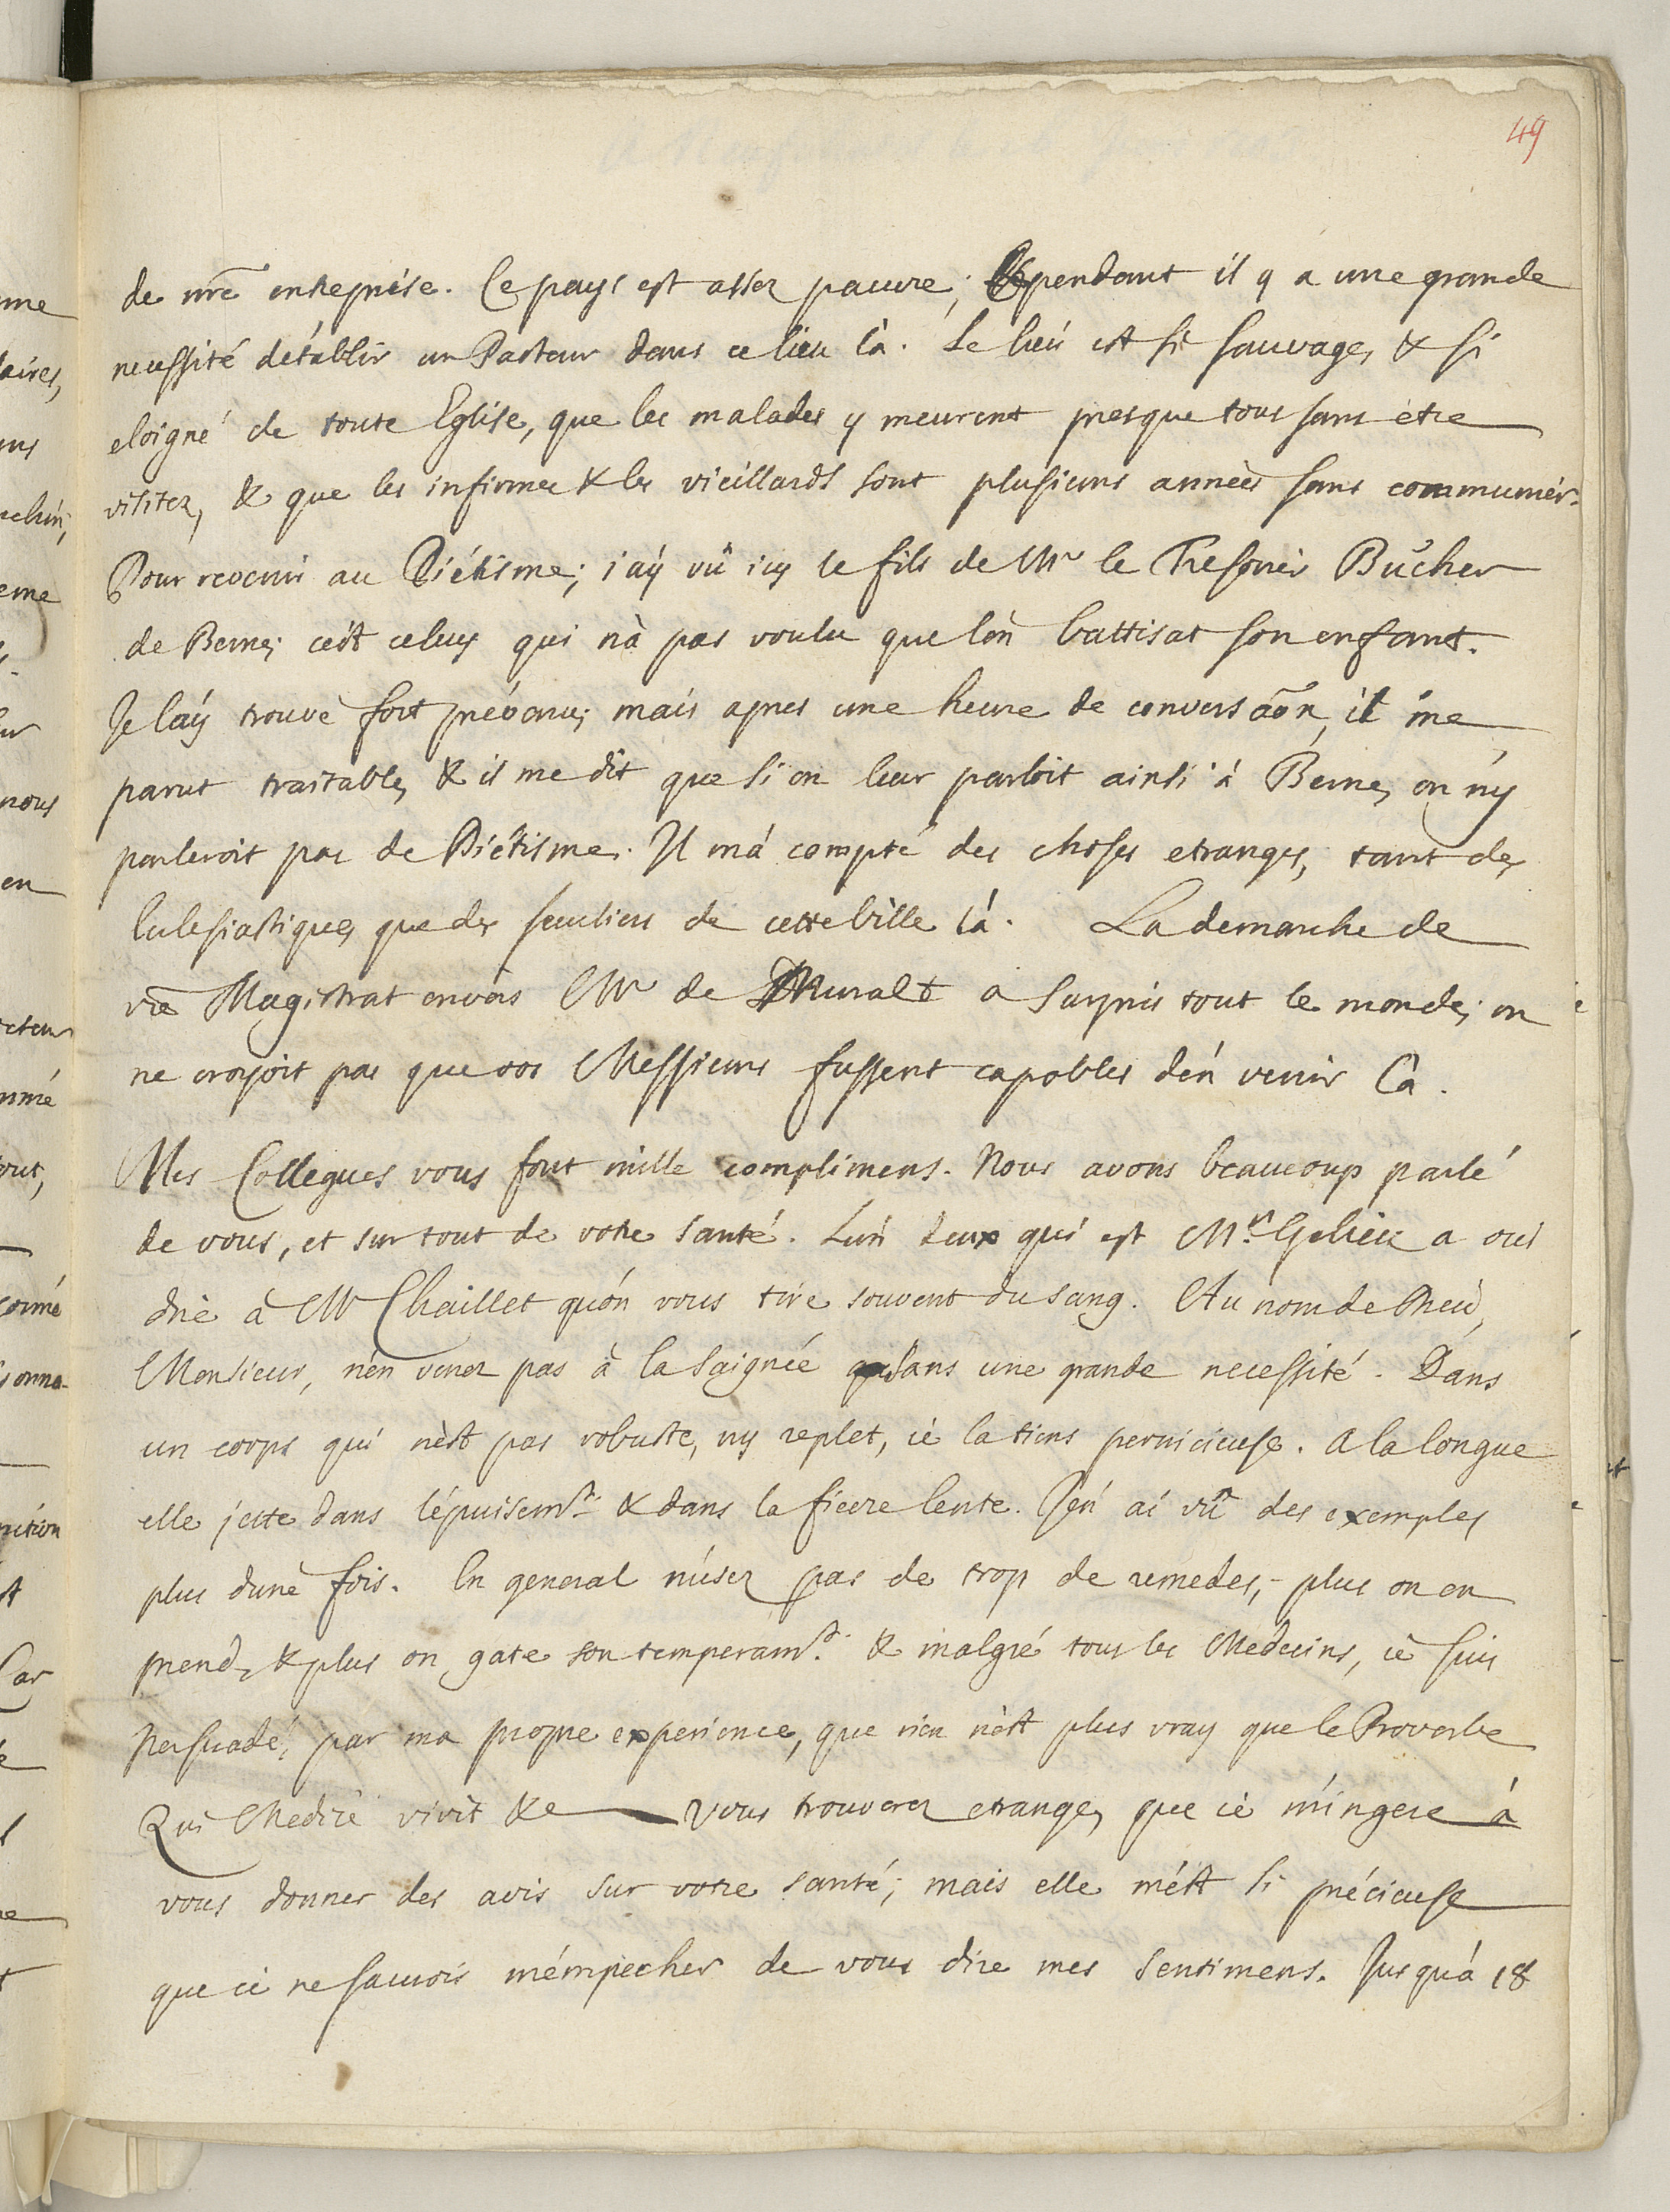 49
de nre entreprise. Ce pays est assez pauvre; Cependant il y a une grande
necessité d'établir un Pasteur dans ce lieu là. Le lieu est si sauvage, & si
eloigné de toute Eglise, que les malades y meurent presque tous sans être
visitez, & que les infirmes & les vieillards sont plusieurs années sans communier.
Pour revenir au Piétisme; j'aÿ vû icy le fils de Mr le Tresorier Bucher
de Berne; c'est celuy qui n'a pas voulu que l'on battisat son enfant.
Je l'aÿ trouvé fort prévenu; mais apres une heure de conversaõn, il me
parut traitable, & il me dit que si on leur parloit ainsi à Berne, on n'y
parleroit pas de Piétisme. Il m'a compté des choses etranges, tant des
Eclesiastiques que des seculiers de cette Ville là. La demarche de
vre Magistrat envers Mr de Muralt a surpris tout le monde; on
ne croyoit pas que vos Messieurs fussent capables d'en venir là.
Mes Collegues vous font mille complimens. Nous avons beaucoup parlé
de vous, et sur tout de votre santé. L'un deux qui est Mr. Gelieu a oui
dire à Mr Chaillet qu'on vous tire souvent du sang. Au nom de Dieu,
Monsieur, n'en venez pas à la saignée dans une grande necessité. Dans
un corps qui n'est pas robuste, ny replet, je la tiens pernicieuse. A la longue
elle jette dans l'épuisemt. & dans la fievre lente. J'en ai vû des exemples
plus d'une fois. En general n'usez pas de trop de remedes, plus on en
prend, & plus on gate son temperamt. & malgré tous les Medecins, je suis
persuadé, par ma propre experience, que rien n'est plus vray que le Proverbe
Qui Medicè vivit &c Vous trouverez etrange, que je m'ingere à
vous donner des avis sur votre santé; mais elle m'est si précieuse
que je ne saurois m'émpecher de vous dire mes sentimens. Jusqu'à 18